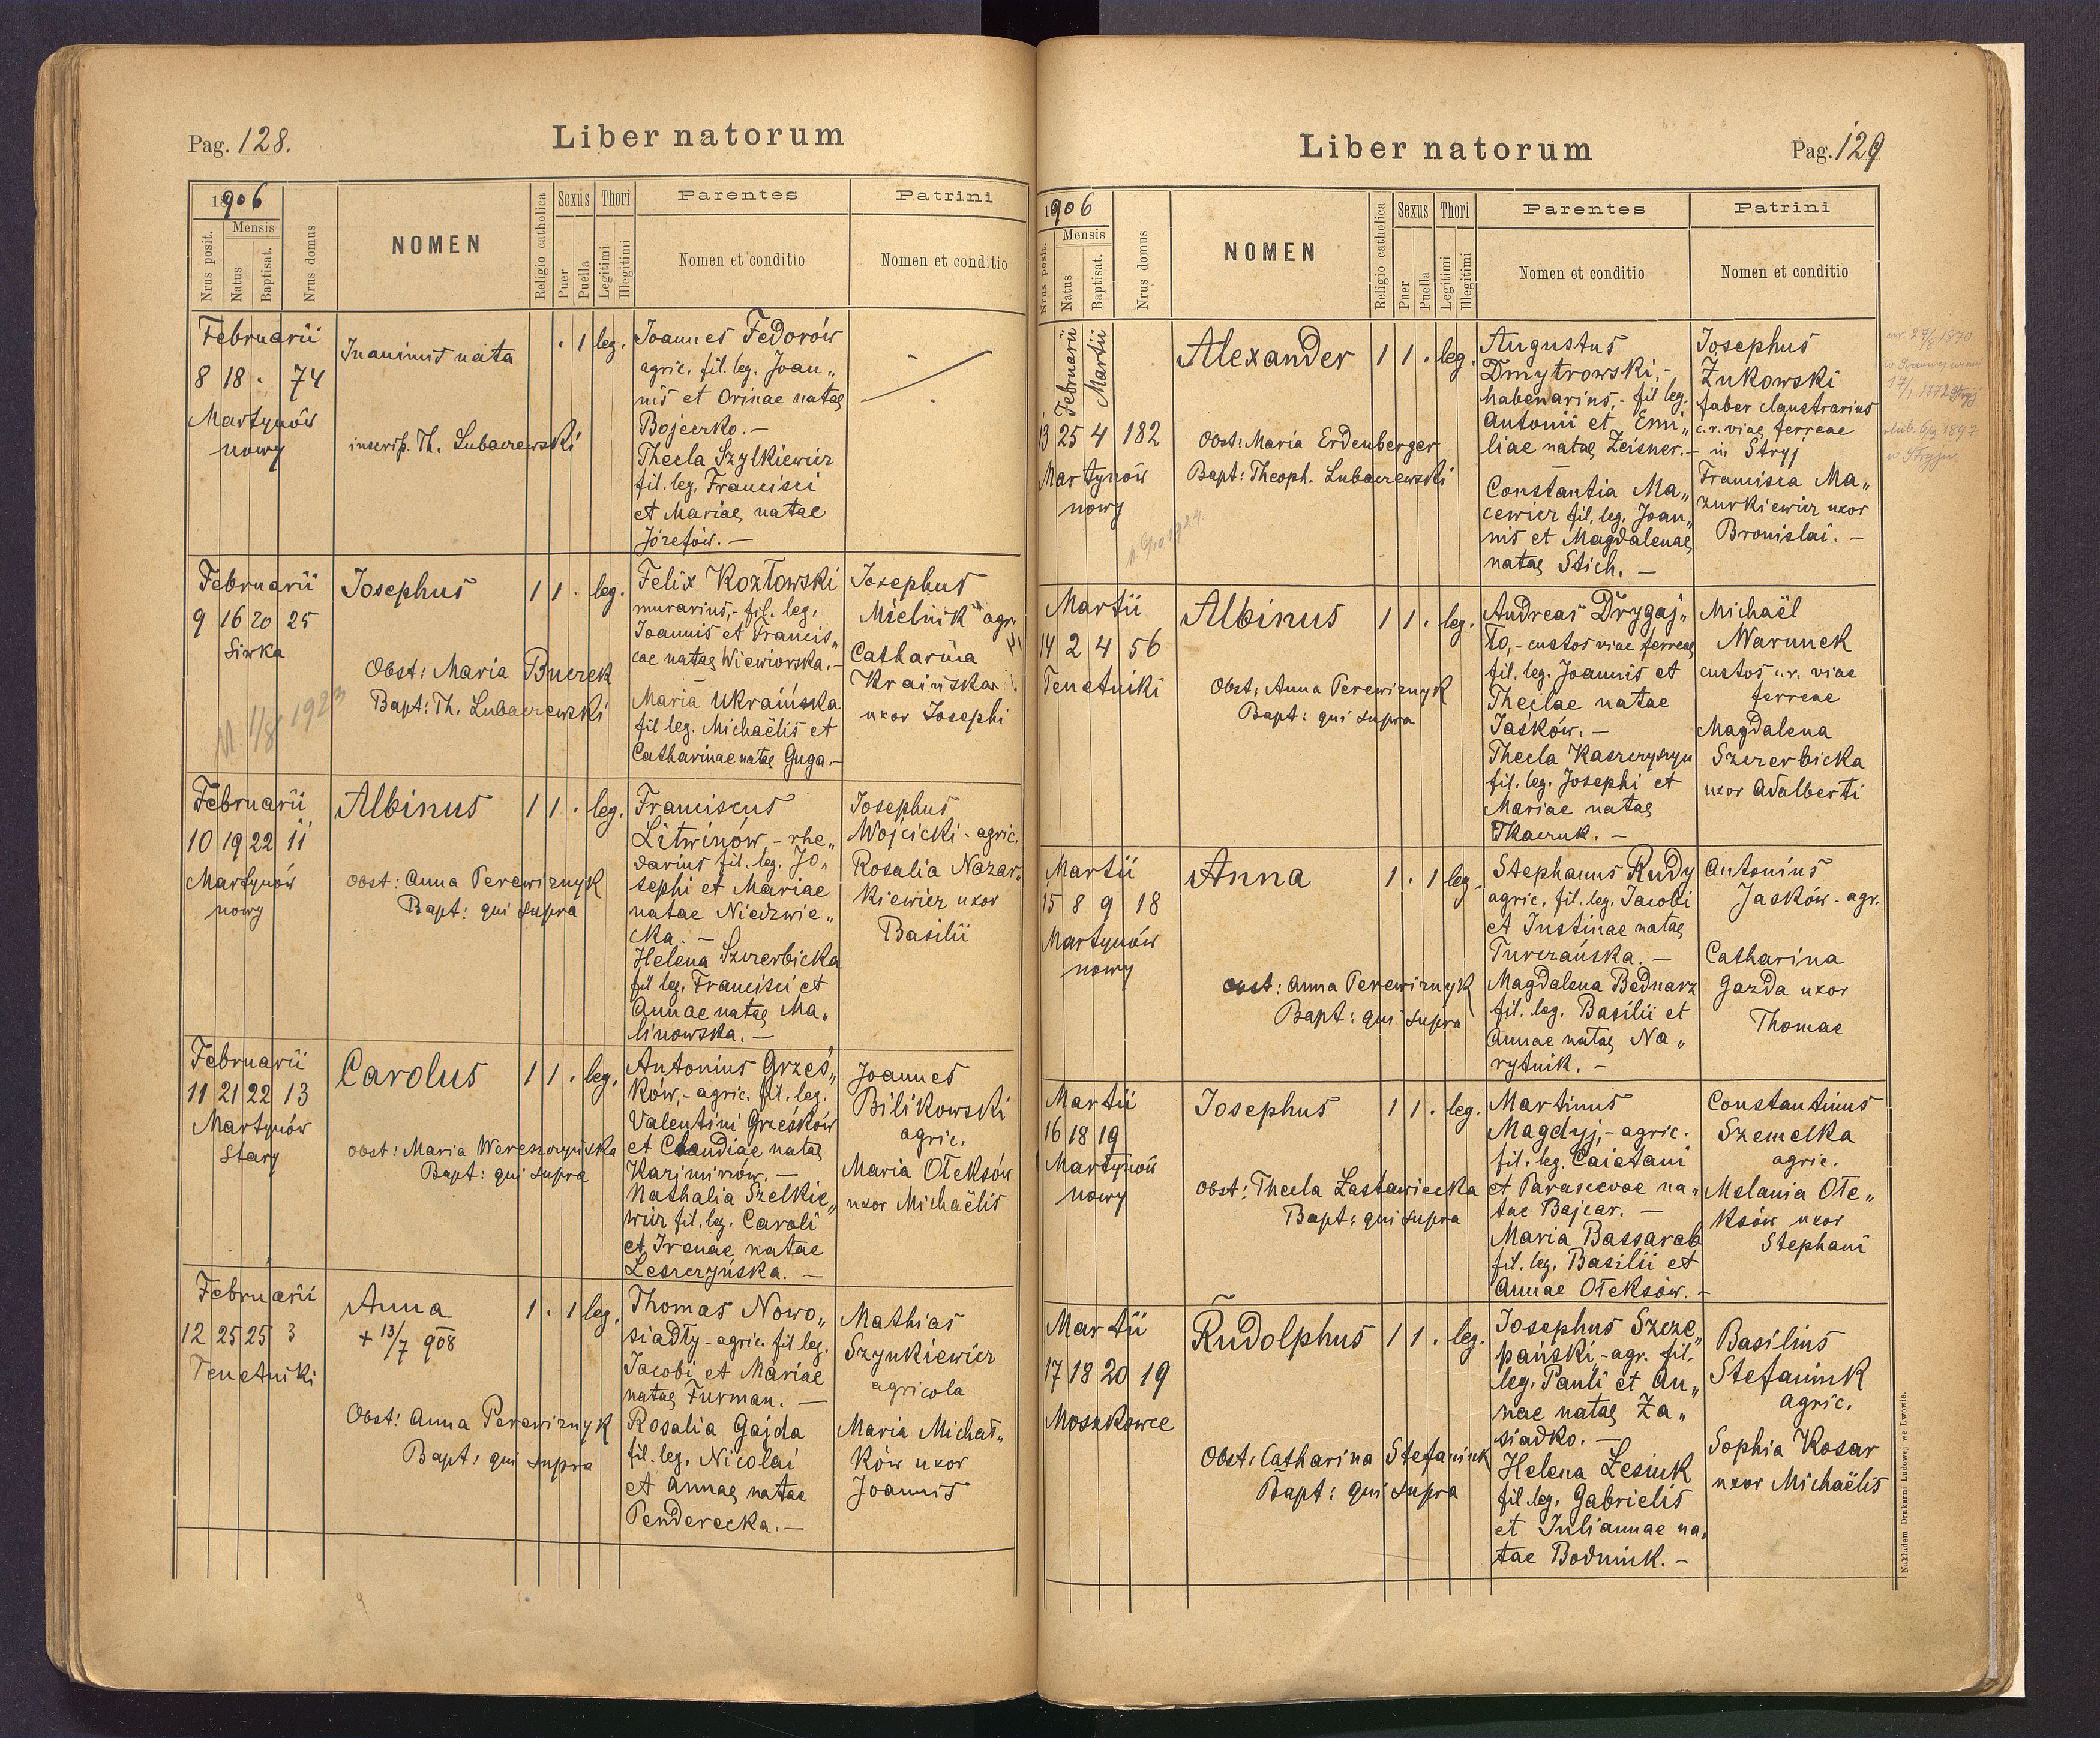 Pag. 128.
Liber natorum
1906
Mensis
Nrus posit.
Natus
Baptisat.
Nrus domus
NOMEN
Religio catholica
Sexus
Puer
Puella
Thori
Legitimi
Illegitimi
Parentes
Nomen et conditio
Patrini
Nomen et conditio
Februarii
8 18 . 74
Martynów
nowy
Inanimis nata
inscrips. Th. Lubaczewski
. 1 leg.
Joannes Fedorów
agric. fil. leg. Joan„
nis et Orinae natae
Bojeczko. —
Thecla Szylkiewicz
fil. leg. Francisci
et Mariae natae
Józefów. —
Februarii
9 16 20 25
Siwka
Josephus
Obst: Maria Buczek
Bapt: Th. Lubaczewski
1/8 1923
1 1 . leg.
Felix Kozłowski
murarius,- fil. leg.
Joannis et Francis„
cae natae Wiewiorska. —
Maria Ukraińska
fil leg. Michaëlis et
Catharinae natae Guga. —
Josephus
Mielnik agr.
Catharina
Kraińska
uxor Josephi
Februarii
10 19 22 11
Martynów
nowy
Albinus
obst: Anna Perewiznyk
Bapt: qui supra
1 1 . leg.
Franciscus
Litwinów, - rhe„
darius fil. leg. Jo„
sephi et Mariae
natae Niedzwie„
cka. —
Helena Szczerbicka
fil leg. Francisci et
Annae natae Ma„
linowska. —
Josephus
Wojcicki - agric.
Rosalia Nazar„
kiewicz uxor
Basilii
Februarii
11 21 22 13
Martynów
stary
Carolus
obst: Maria Wereszczyńska
Bapt: qui supra
1 1 . leg.
Antonius Grześ„
ków,- agric. fil. leg.
Valentini Grześków
et Claudiae natae
Kazimirów. —
Nathalia Szelkie„
wicz fil. leg. Caroli
et Irenae natae
Leszczyńska. —
Joannes
Bilikowski
agric.
Maria Oleksów
uxor Michaëlis
Februarii
12 25 25 3
Tenetniki
Anna
+ 13/7 908
Obst: Anna Perewiznyk
Bapt: qui supra
1 . 1 leg.
Thomas Nowo„
siadły - agric. fil leg.
Jacobi et Mariae
natae Furman. —
Rosalia Gajda
fil. leg. Nicolai
et Annae natae
Penderecka. —
Mathias
Szynkiewicz
agricola
Maria Michał„
ków uxor
Joannis
Liber natorum
Pag. 129
1906
Mensis
Nrus posit.
Natus
Baptisat.
Nrus domus
NOMEN
Religio catholica
Sexus
Puer
Puella
Thori
Legitimi
Illegitimi
Parentes
Nomen et conditio
Patrini
Nomen et conditio
Februarii
Martii
13 25 4 182
Martynów
nowy
Alexander
Obst: Maria Erdenberger
Bapt: Theoph. Lubaczewski
1 1 . leg.
Augustus
Dmytrowski,-
habenarius,- fil leg.
Antonii et Emi„
liae natae Zeisner. —
Constantia Ma„
cewicz fil. leg. Joan„
nis et Magdalenae
natae Stich. —
Josephus
Żukowski
faber claustrarius
c. r. viae ferreae
in Stryj
Francisca Ma„
zurkiewicz uxor
Bronislai. —
ur. 27/8 1870
17/1 1872 Stryj
ślub. 6/2 1897
w Stryju.
Martii
14 2 4 56
Tenetniki
Albinus
Obst: Anna Perewiznyk
Bapt: qui supra
1 1 . leg.
Andreas Drygaj„
ło,- custos viae ferreae
fil. leg. Joannis et
Theclae natae
Jaśków. —
Thecla Kaszczyszyn
fil. leg. Josephi et
Mariae natae
Tkaczuk. —
Michaël
Warunek
custos c. r. viae
ferreae
Magdalena
Szczerbicka
uxor Adalberti
Martii
15 8 9 18
Martynów
nowy
Anna
obst: Anna Perewiznyk
Bapt: qui supra
1 . 1 leg.
Stephanus Rudy
agric. fil. leg. Jacobi
et Justinae natae
Turczańska. —
Magdalena Bednarz
fil. leg. Basilii et
Annae natae Na„
rytnik. —
Antonius
Jasków - agr.
Catharina
Gazda uxor
Thomae
Martii
16 18 19
Martynów
nowy
Josephus
Obst: Thecla Zastawiecka
Bapt: qui supra
1 1 . leg.
Martinus
Magdyj,- agric.
fil. leg. Caietani
et Parascevae na„
tae Bajcar. —
Maria Bassarab
fil. leg. Basilii et
Annae Oleksów. —
Constantinus
Szemelka
agric.
Melania Ole„
ksów uxor
Stephani
Martii
17 18 20 19
Moszkowce
Rudolphus
Obst: Catharina Stefaniuk
Bapt: qui supra
1 1 . leg.
Josephus Szcze„
pański - agr. fil.
leg. Pauli et An„
nae natae Za„
siadko. —
Helena Lesiuk
fil leg. Gabrielis
et Juliannae na„
tae Bodniuk. —
Basilius
Stefaniuk
agric.
Sophia Kosar
uxor Michaëlis
Nakładem Drukarni Ludowej we Lwowie.